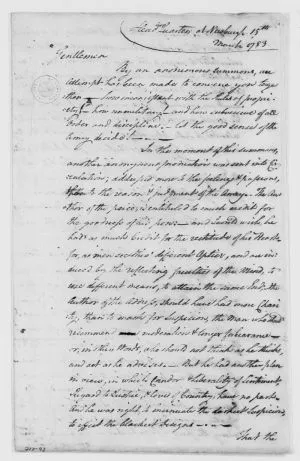 Head Quarters at Newburgh 15th
March 1783
Gentlemen
By an anonymous summons, an
attempt has been made to convene you toge-
ther — how inconsistent with the rules of propri-
ety! — how unmilitary! — and how subversive of all
order and discipline — let the good sense of the
Army decide.
In the moment of this summons,
another anonymous production was sent into Cir-
culation; addressed more to the feelings & passions,
than to the reason & judgment of the Army. The Au-
thor of the piece, is entitled to much credit for
the goodness of his pen: — and I could wish he
had as much credit for the rectitude of his Heart —
for, as men see thro' different Optics, and are in-
duced by the reflecting faculties of the Mind, to
use different means, to attain the same end: the
Author of the Address, should have had more Chari-
ty, than to mark for Suspicion, the Man who should
recommend moderation & longer forbearance —
or, in other Words, who should not think as he thinks,
and act as he advises. — But he had another plan
in view, in which Candor & liberality of Sentiment,
Regard to Justice, & love of Country, have no part;
and he was right, to insinuate the darkest Suspicion,
to effect the blackest designs. —
That the